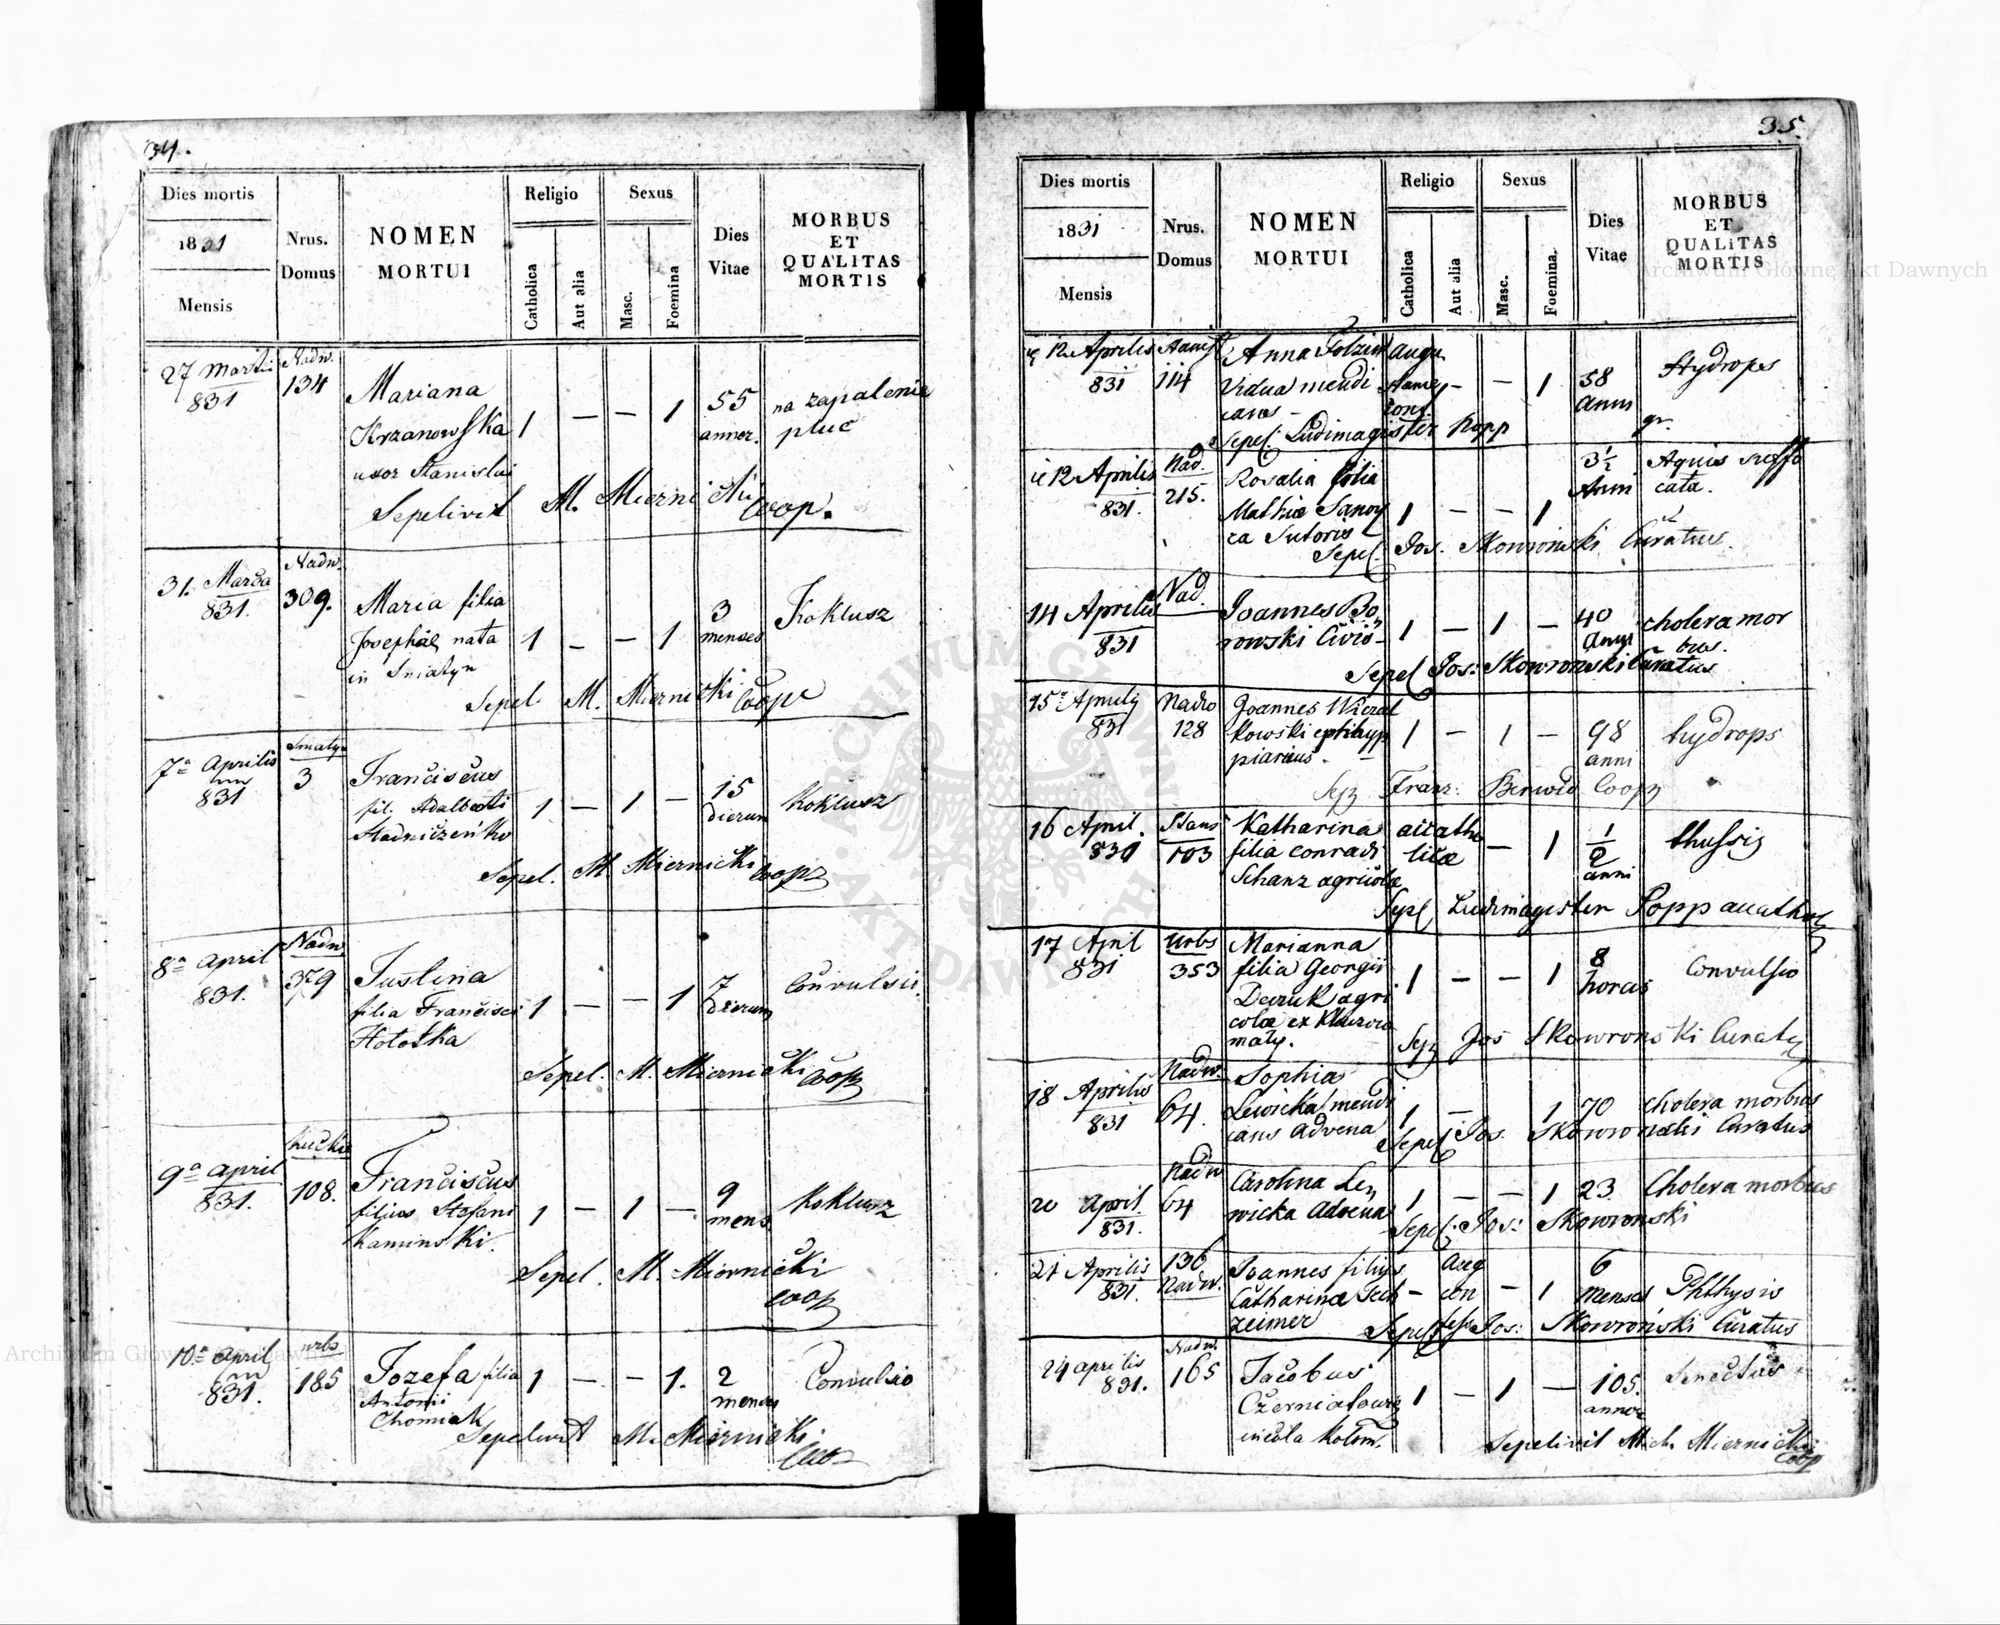 34.
Dies mortis
1831
Mensis
Nrus.
Domus
NOMEN
MORTUI
Religio
Catholica
Aut alia
Sexus
Masc.
Foemina
Dies
Vitae
MORBUS
ET
QUALITAS
MORTIS
27 Martii
831
Nadw.
134
Mariana
Krzanowska
uxor Stanislai
1 — — 1
55
annor.
na zapalenie
pluc
Sepelivit M. Miernicki Coop.
31. Marca
831.
Nadw.
309.
Maria filia
Josephae nata
in Sniatyn
1 — — 1
3
menses
Koklusz
Sepel. M. Miernicki Coop
7a Aprilis
831
Sniatyn
3
Franciscus
fil. Adalberti
Stadniczeńko
1 — 1 —
15
dierum
Koklusz
Sepel. M. Miernicki Coop
8a April
831.
Nadw.
379
Justina
filia Francisci
Hołotka
1 — — 1
7
dierum
Convulsio.
Sepel. M. Miernicki Coop
9a April
831.
108.
Franciscus
filius Stefani
Kaminski.
1 — 1 —
9
mens
Koklusz
Sepel. M. Miernicki
Coop
10a April
831.
urbs
185
Jozefa filia
Antonii
Chomiak
1 — — 1.
2
menses
Convulsio
Sepelivit M. Miernicki.
35.
Dies mortis
1831
Mensis
Nrus.
Domus
NOMEN
MORTUI
Religio
Catholica
Aut alia
Sexus
Masc.
Foemina.
Dies
Vitae
MORBUS
ET
QUALITAS
MORTIS
12 Aprilis
831
114
Anna
Vidua mendi
cans —
Augu
stanae
conf.
— — 1
58
Anni
Hydrops
Sepel: Ludimagister Popp
12 Aprilis
831.
Nad.
215.
Rosalia filia
Mathiae Sanoy
ca Sutoris
1 — — 1
3 1/2
Anni
Aquis suffo
cata.
Sepel: Jos. Skowroński Curatus.
14 Aprilis
831
Nad.
Joannes Bo
rowski Civis —
1 — 1 —
40
Anni
cholera mor
bus.
Sepel Jos: Skowronski Curatus
15 Aprilis
831
Nadw
128
Joannes Wiczal
kowski ephihyp
piarius. —
1 — 1 —
98
anni
hydrops
Franz: Coop
16 April.
831
Stans
103
Katharina
filia conradi
Schanz agricolae
acatho
licae
— 1
1/2
anni
thussis
Sepel, Ludimagister Popp
17 April
831
Urbs
353
Marianna
filia Georgii
agri
colae ex
1 — — 1
8
horas
Convulsio
Jos Skowronski Curatus
18 Aprilis
831
Nadw.
64.
Sophia
Lewicka mendi
cans advena
1 — 1
70
cholera morbus
Sepel Jos. Skowronski Curatus
20 April.
831.
Nadw
64
Carolina Le
wicka Advena
1 — — 1
23
Cholera morbus
Sepel. Jos: Skowronski
21 Aprilis
831.
136
Nadw.
Joannes filius
Catharinae Tech
zeimer
— Aug
con
fess
— 1
6
menses
Phthysis
Sepel Jos: Skowroński Curatus
24 aprilis
831.
Nadw.
165
Jacobus
incola Kolom.
1 — 1 —
105.
annor
Senectus
Sepelivit Mich. Miernicki
Coop
Archiwum Główne Akt Dawnych
Archiwum Główne Akt Dawnych
ARCHIWUM GŁÓWNE • AKT DAWNYCH •